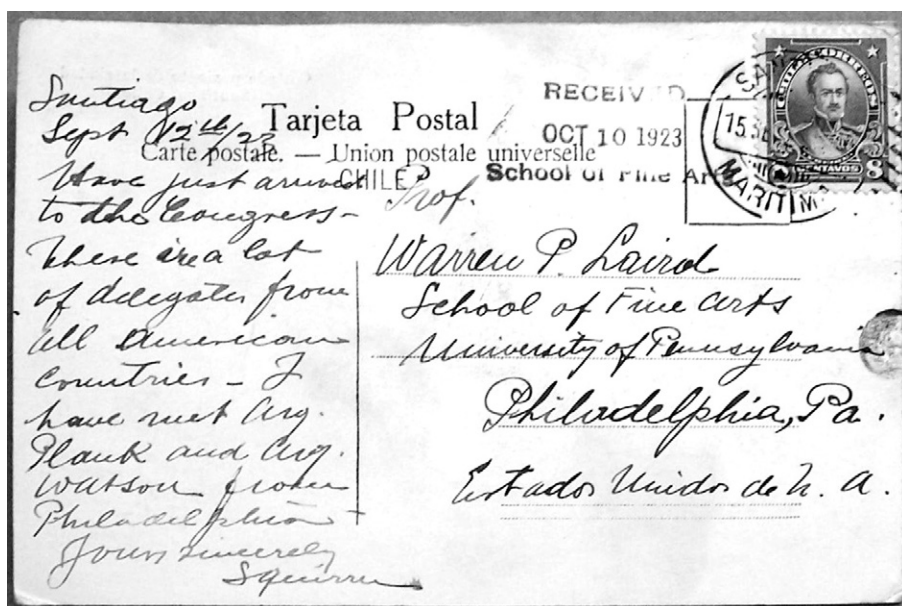 Santiago
Sept 12th/23
Have just arrived
to the Congress -
there are a lot
of delegates from
all american
countries - I
have met Arq.
Plank and Arq.
Watson from
Philadelphia
Yours sincerely
Tarjeta Postal
Carte postale. — Union postale universelle
CHILE
RECEIVED
OCT 10 1923
School of Fine Arts
Prof.
Warren P. Laird
School of Fine Arts
University of Pennsylvania
Philadelphia, Pa.
Estados Unidos de N. A.
MARITIM
8